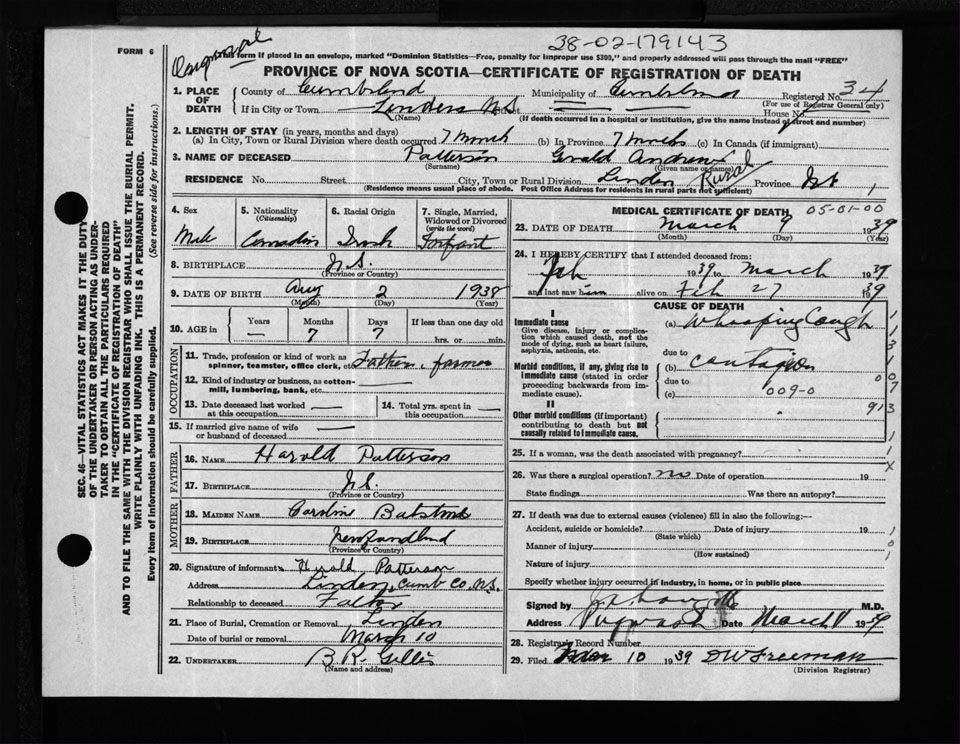 38-02-179143
FORM 6
This form if placed in an envelope, marked "Dominion Statistics—Free, penalty for improper use $300," and properly addressed will pass through the mail "FREE"
PROVINCE OF NOVA SCOTIA—CERTIFICATE OF REGISTRATION OF DEATH
SEC. 46—VITAL STATISTICS ACT MAKES IT THE DUTY
OF THE UNDERTAKER OR PERSON ACTING AS UNDER-
TAKER TO OBTAIN ALL THE PARTICULARS REQUIRED
IN THE "CERTIFICATE OF REGISTRATION OF DEATH"
AND TO FILE THE SAME WITH THE DIVISION REGISTRAR WHO SHALL ISSUE THE BURIAL PERMIT.
WRITE PLAINLY WITH UNFADING INK. THIS IS A PERMANENT RECORD.
Every item of information should be carefully supplied. (See reverse side for instructions.)
1. PLACE OF DEATH
County of Cumberland Municipality of Cumberland Registered No. 34
(For use of Registrar General only)
If in City or Town Linden N.S. House No.
(Name) (If death occurred in a hospital or institution, give the name instead of street and number)
2. LENGTH OF STAY (in years, months and days)
(a) In City, Town or Rural Division where death occurred 7 Month (b) In Province 7 Months (c) In Canada (if immigrant)
3. NAME OF DECEASED Patterson Gerald Andrew
(Surname) (Given name or names)
RESIDENCE No. Street City, Town or Rural Division Linden Rural Province
(Residence means usual place of abode. Post Office Address for residents in rural parts not sufficient)
4. Sex
Male
5. Nationality
(Citizenship)
Canadian
6. Racial Origin
Irish
7. Single, Married,
Widowed or Divorced
(write the word)
Infant
8. BIRTHPLACE N.S.
(Province or Country)
9. DATE OF BIRTH Aug 2 1938
(Month) (Day) (Year)
10. AGE in Years — Months 7 Days 7 If less than one day old
hrs. or min.
OCCUPATION
11. Trade, profession or kind of work as
spinner, teamster, office clerk, etc. Father, farmer
12. Kind of industry or business, as cotton-
mill, lumbering, bank, etc.
13. Date deceased last worked
at this occupation
14. Total yrs. spent in
this occupation
15. If married give name of wife
or husband of deceased
FATHER
16. NAME Harold Patterson
17. BIRTHPLACE N.S.
(Province or Country)
MOTHER
18. MAIDEN NAME Caroline Batstone
19. BIRTHPLACE Newfoundland
(Province or Country)
20. Signature of informant Harold Patterson
Address Linden, Cumb Co. N.S.
Relationship to deceased Father
21. Place of Burial, Cremation or Removal Linden
Date of burial or removal March 10
22. UNDERTAKER B. R. Gillis
(Name and address)
MEDICAL CERTIFICATE OF DEATH 05-01-00
23. DATE OF DEATH March 9 1939
(Month) (Day) (Year)
24. I HEREBY CERTIFY that I attended deceased from:
Feb 1939 to March 1939
and last saw him alive on Feb 27 1939
CAUSE OF DEATH
I
Immediate cause
Give disease, injury or complica-
tion which caused death, not the
mode of dying, such as heart failure,
asphyxia, asthenia, etc.
(a) Whooping Cough
due to
Morbid conditions, if any, giving rise to
immediate cause (stated in order
proceeding backwards from im-
mediate cause).
(b) contagion
due to
(c) 009-0
II
Other morbid conditions (if important)
contributing to death but not
causally related to immediate cause.
913
25. If a woman, was the death associated with pregnancy?
26. Was there a surgical operation? no Date of operation 19
State findings Was there an autopsy?
27. If death was due to external causes (violence) fill in also the following:—
Accident, suicide or homicide? Date of injury 19
(State which)
Manner of injury
(How sustained)
Nature of injury
Specify whether injury occurred in industry, in home, or in public place
Signed by M.D.
Address Pugwash Date March 1939
28. Registrar's Record Number
29. Filed Mar 10 1939 D W Freeman
(Division Registrar)